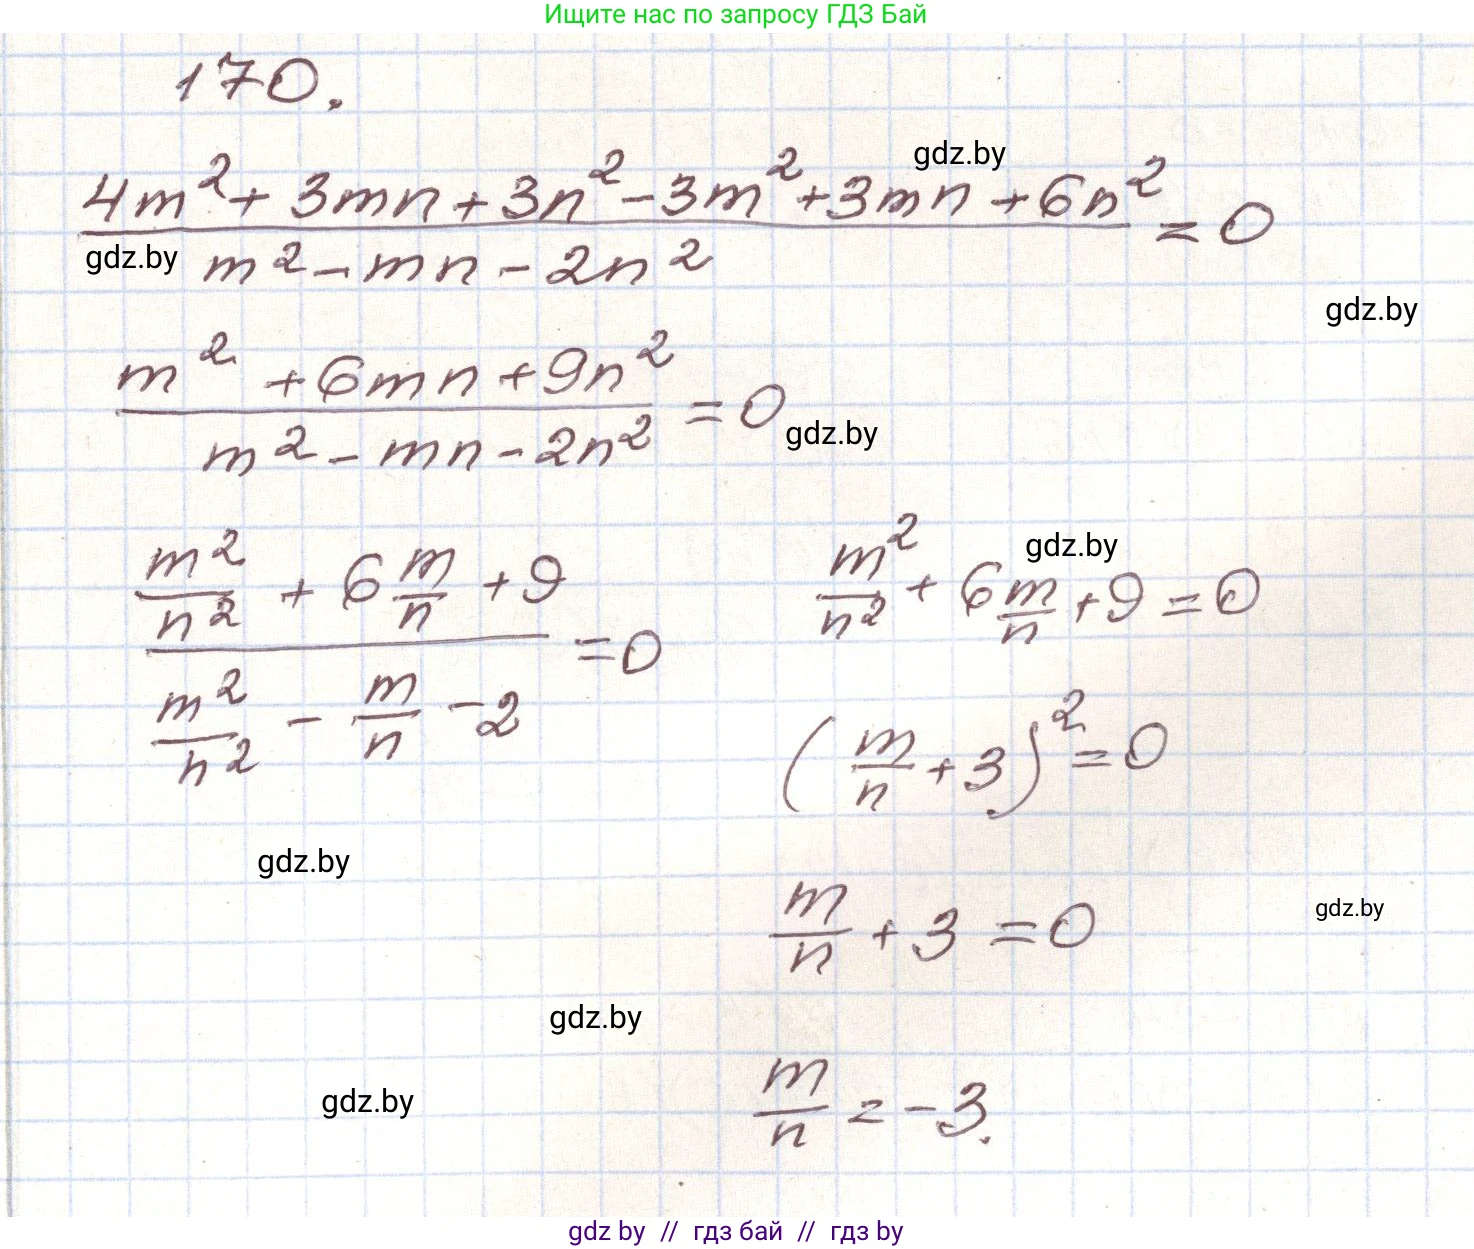 Ищите нас по запросу ГДЗ Бай
170.
gdz.by
(4m² + 3mn + 3n² - 3m² + 3mn + 6n²) / (m² - mn - 2n²) = 0
gdz.by
gdz.by
(m² + 6mn + 9n²) / (m² - mn - 2n²) = 0
gdz.by
(m²/n² + 6 m/n + 9) / (m²/n² - m/n - 2) = 0
gdz.by
m²/n² + 6 m/n + 9 = 0
(m/n + 3)² = 0
gdz.by
m/n + 3 = 0
gdz.by
gdz.by
gdz.by
m/n = -3.
gdz by // гдз бай // гдз by